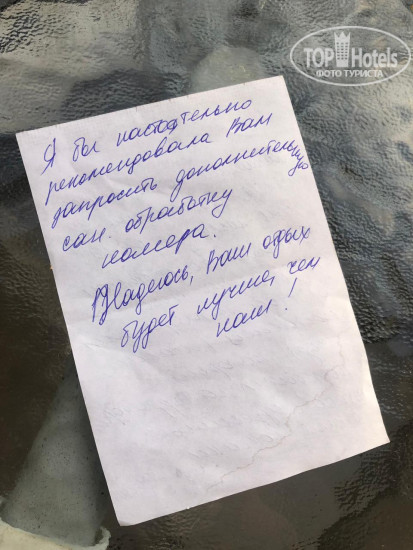 TOPHotels
ФОТО ТУРИСТА
Я бы настоятельно
рекомендовала Вам
запросить дополнительную
сан. обработку
номера.
Надеюсь, Ваш отдых
будет лучше, чем
наш!